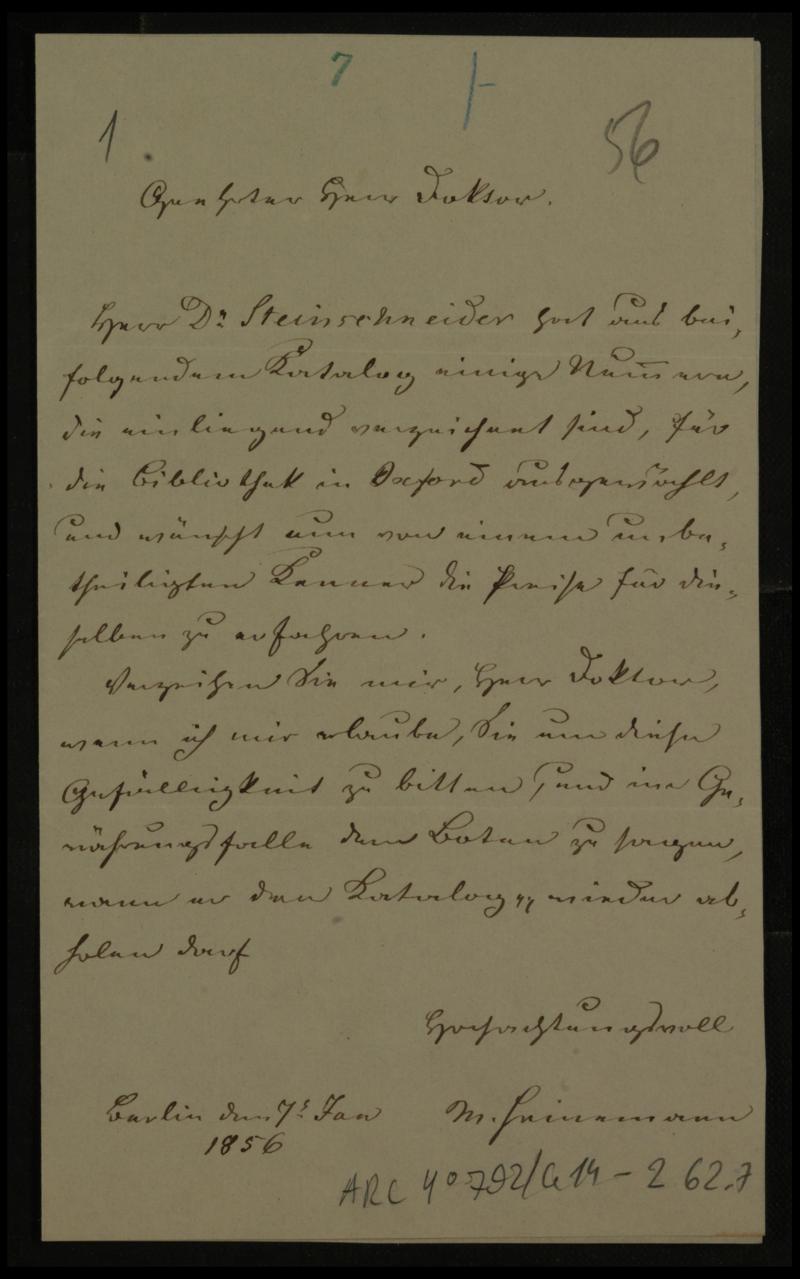 7
1
56
Geehrter Herr Doktor.
Herr Dr Steinschneider hat aus bei,
folgendem Katalog einige Num̅ern,
die einliegend verzeichnet sind, für
die Bibliothek in Oxford ausgewählt,
und wünscht nun von einem unbe,
theiligten Kenner die Preise für die,
selben zu erfahren.
Verzeihen Sie mir, Herr Doktor,
wenn ich mir erlaube, Sie um diese
Gefälligkeit zu bitten, und im Ge,
währungsfalle dem Boten zu sagen,
wann er den Katalog wieder ab,
holen darf
Hochachtungsvoll
Berlin den 7t Jan
M. Heinemann
1856
ARC 4° 792/G14 - 262.7